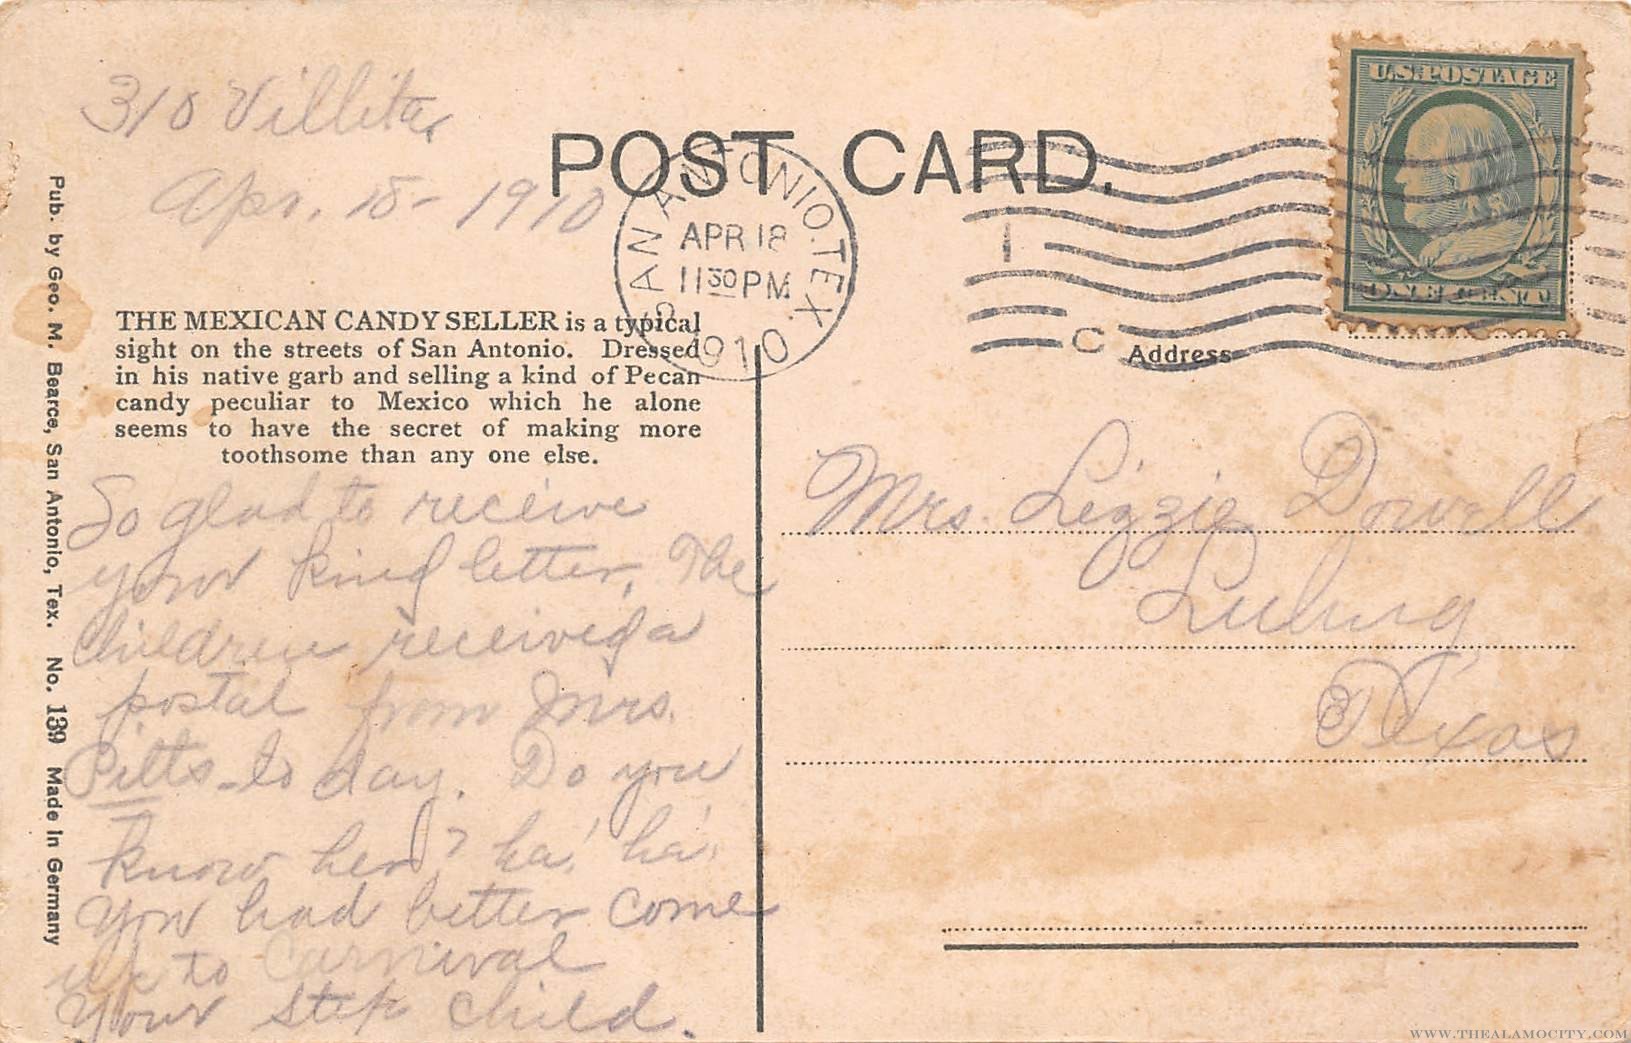 310 Villita
Apr. 18 - 1910
POST CARD.
SAN ANTONIO. TEX.
APR 18
11 30 PM
1910
U.S. POSTAGE
ONE CENT
1
C
THE MEXICAN CANDY SELLER is a typical
sight on the streets of San Antonio. Dressed
in his native garb and selling a kind of Pecan
candy peculiar to Mexico which he alone
seems to have the secret of making more
toothsome than any one else.
Pub. by Geo. M. Bearce, San Antonio, Tex. No. 139 Made in Germany
So glad to receive
your kind letter, The
children received a
postal from Mrs.
Pitts - to day. Do you
know her? ha! ha!
You had better come
up to Carnival
Your Step child.
Address
Mrs. Lizzie Dowell
Luling
Texas
WWW.THEALAMOCITY.COM